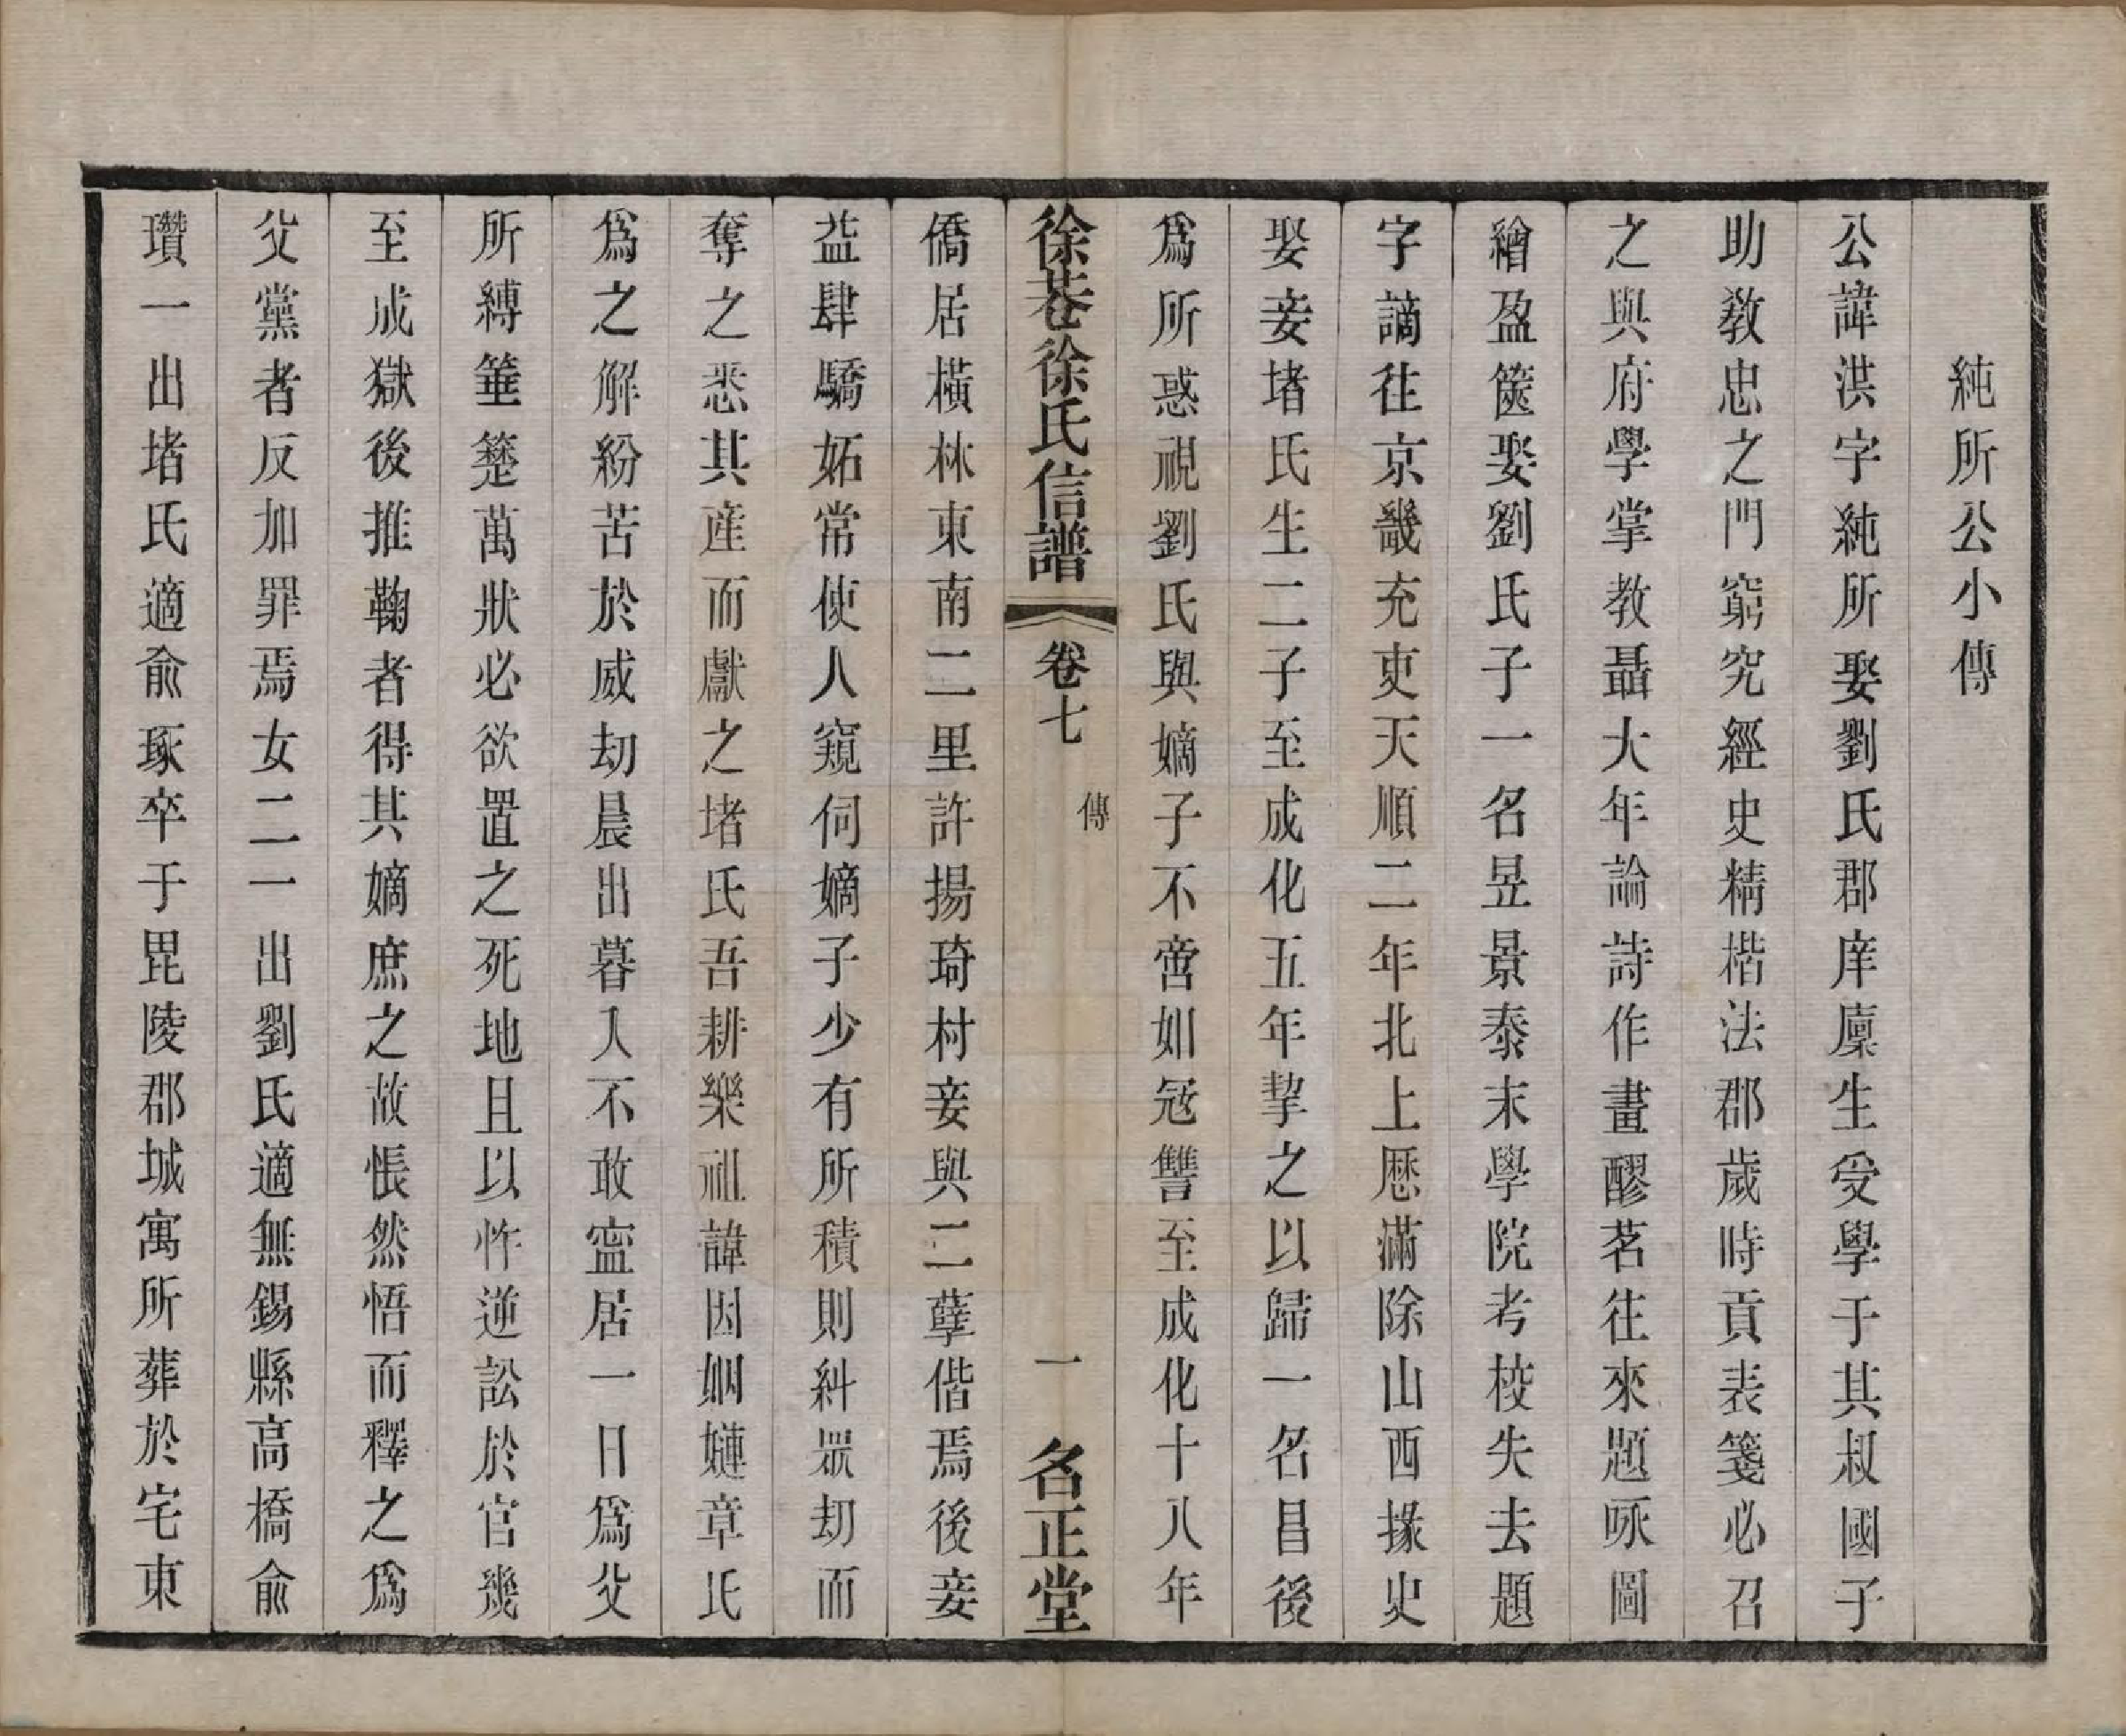 純所公小傳
公諱洪字純所娶劉氏郡庠廩生受學于其叔國子
助教忠之門窮究經史精楷法郡歲時貢表箋必召
之與府學掌教聶大年論詩作畫醪茗往來題咏圖
繪盈篋娶劉氏子一名昱景泰末學院考校失去題
字謫往京畿充吏天順二年北上歷滿除山西掾史
娶妾堵氏生二子至成化五年挈之以歸一名昌後
爲所惑視劉氏與嫡子不啻如冦讐至成化十八年
徐巷徐氏信譜 卷七 傳 一 名正堂
僑居橫林東南二里許揚琦村妾與二孽偕焉後妾
益肆驕妬常使人窺伺嫡子少有所積則糾眾刧而
奪之悉其產而獻之堵氏吾耕樂祖諱因姻嫿章氏
爲之解紛苦於威刧晨出暮入不敢寍居一日爲父
所縛箠楚萬狀必欲置之死地且以忤逆訟於官幾
至成獄後推鞠者得其嫡庶之故悵然悟而釋之爲
父黨者反加罪焉女二一出劉氏適無錫縣高橋俞
瓚一出堵氏適俞琢卒于毘陵郡城寓所葬於宅東